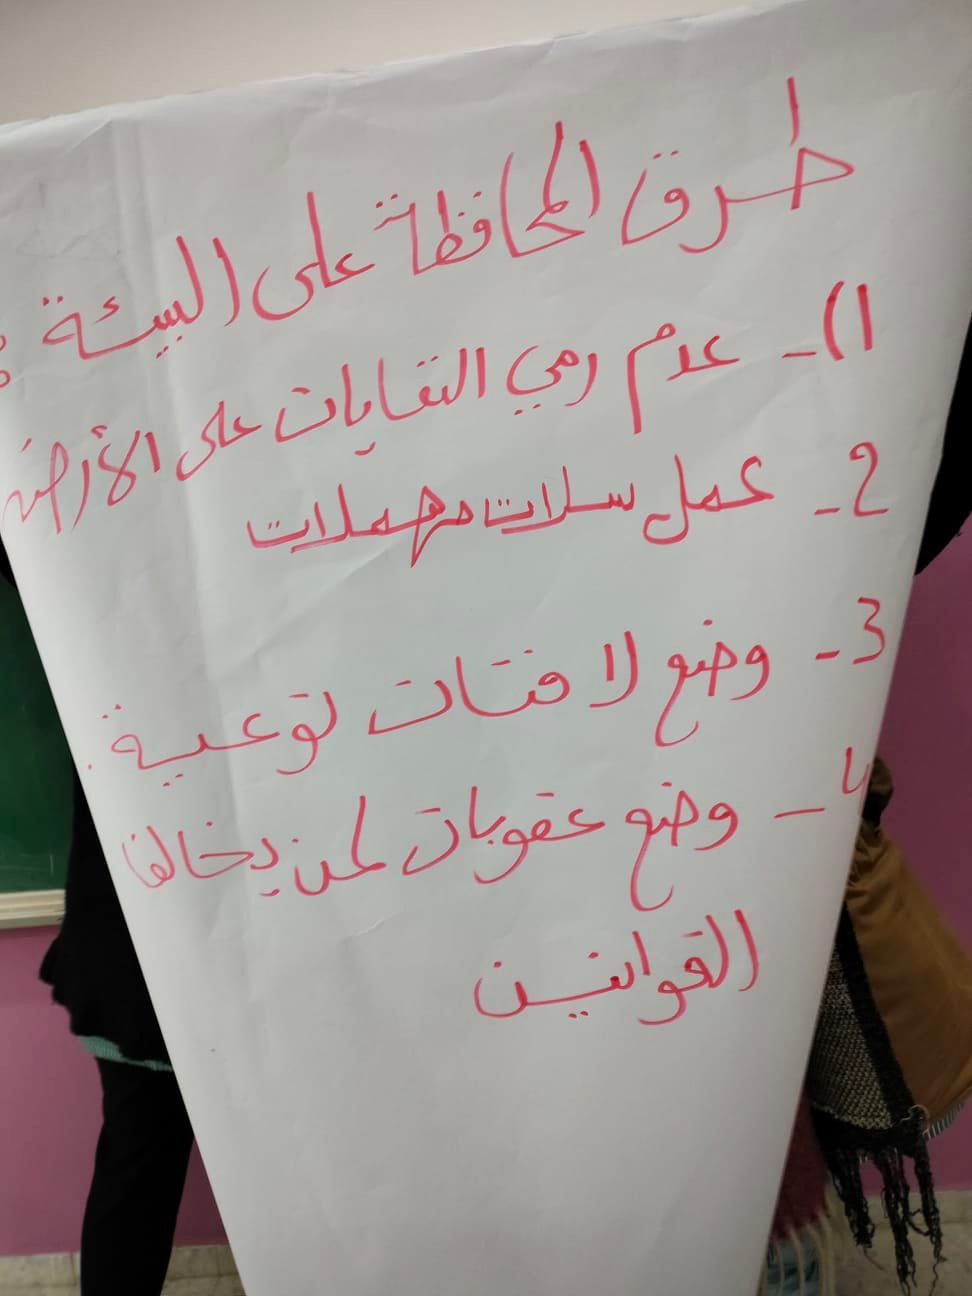 طرق المحافظة على البيئة :
1)- عدم رمي النفايات على الأرض
2- عمل سلات مهملات
3- وضع لافتات توعية .
4- وضع عقوبات لمن يخالف
القوانين